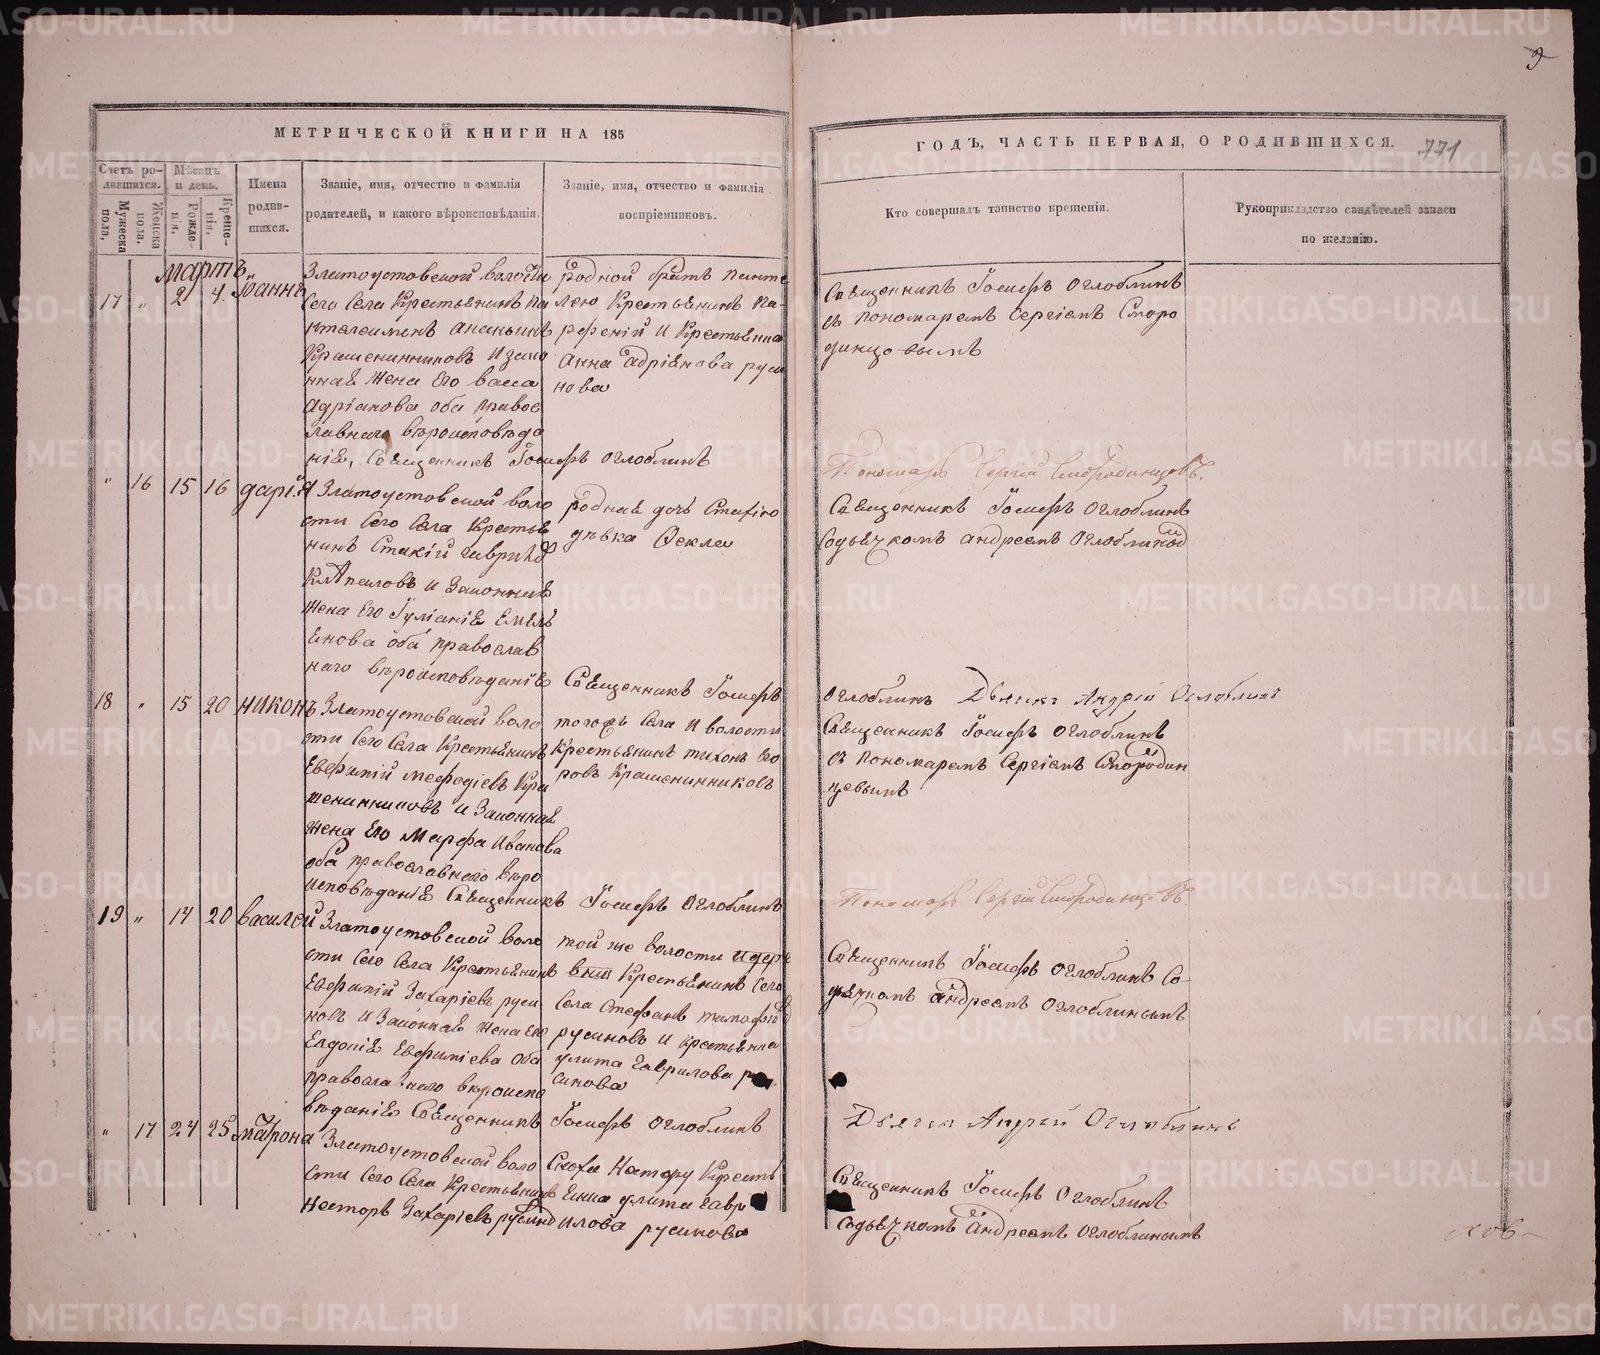 9
МЕТРИЧЕСКОЙ КНИГИ НА 185
ГОДЪ, ЧАСТЬ ПЕРВАЯ, О РОДИВШИХСЯ.
771
Счетъ родившихся.
Мужеска пола.
Женска пола.
Мѣсяцъ и день.
Рожденія.
Крещенія.
Имена родившихся.
Званіе, имя, отчество и фамилія
родителей, и какого вѣроисповѣданія.
Званіе, имя, отчество и фамилія
воспріемниковъ.
Кто совершалъ таинство крещенія.
Рукоприкладство свидѣтелей записи
по желанію.
мартъ
17 " 2 4 Іоаннъ
Златоустовской волости
сего села Крестьянинъ Па
нтелеимонъ Ананьинъ
Крашенинниковъ и зако
нная жена его васса
Адріанова оба правос
лавнаго вѣроисповѣда
нія, Священникъ Іосифъ Оглоблинъ
родной братъ Пантe
лею Крестьянинъ Па-
рфеній и Крестьянка
Анна Адріанова руси
нова
Священникъ Іосифъ Оглоблинъ
съ пономаремъ Сергіемъ Сморо
динцовымъ
Пономарь Сергій Смородинцовъ.
" 16 15 16 дарія
Златоустовской воло
сти сего села Крестья
нинъ Стахій гаврил
и Законная
жена его Іуліанія Емель
янова оба православ
наго вѣроисповѣданія
родная дочь Стахію
дѣвка Фекла
Священникъ Іосифъ Оглоблинъ
содьячкомъ андреемъ Оглоблиным
Священникъ Іосифъ
Оглоблинъ Дьячекъ Андрей Оглоблинъ
18 " 15 20 никонъ
Златоустовской воло
сти сего села Крестьянинъ
Евфимій мефодіевъ Кра
шенинниковъ и Законная
жена его Марфа Иванова
оба православнаго вѣро
исповѣданія Священникъ Іосифъ Оглоблинъ
тогожъ села и волости
Крестьянинъ тихонъ его
ровъ Крашенинниковъ
Священникъ Іосифъ Оглоблинъ
съ пономаремъ Сергіемъ Смородин
цевымъ
Пономарь Сергій Смородинцовъ
19 " 14 20 василей
Златоустовской воло
сти сего села Крестьянинъ
Евфимій Захаріевъ руси
новъ и Законная жена его
Евдокія Евфиміева оба
православнаго вѣроиспо
вѣданія Священникъ Іосифъ Оглоблинъ
той же волости
Крестьянинъ сего
села Стефанъ тимофѣев
русиновъ и крестьянка
улита гаврилова ру
синова
Священникъ Іосифъ Оглоблинъ со
дьячкомъ Андреемъ Оглоблинымъ
Дьячекъ Андрей Оглоблинъ
" 17 24 25 матрона
Златоустовской воло
сти сего села Крестьянинъ
несторъ Захаріевъ русинов
Сноха Нестору Кресть
янка улита гавр
илова русинова
Священникъ Іосифъ Оглоблинъ
содьячкомъ Андреемъ Оглоблинымъ